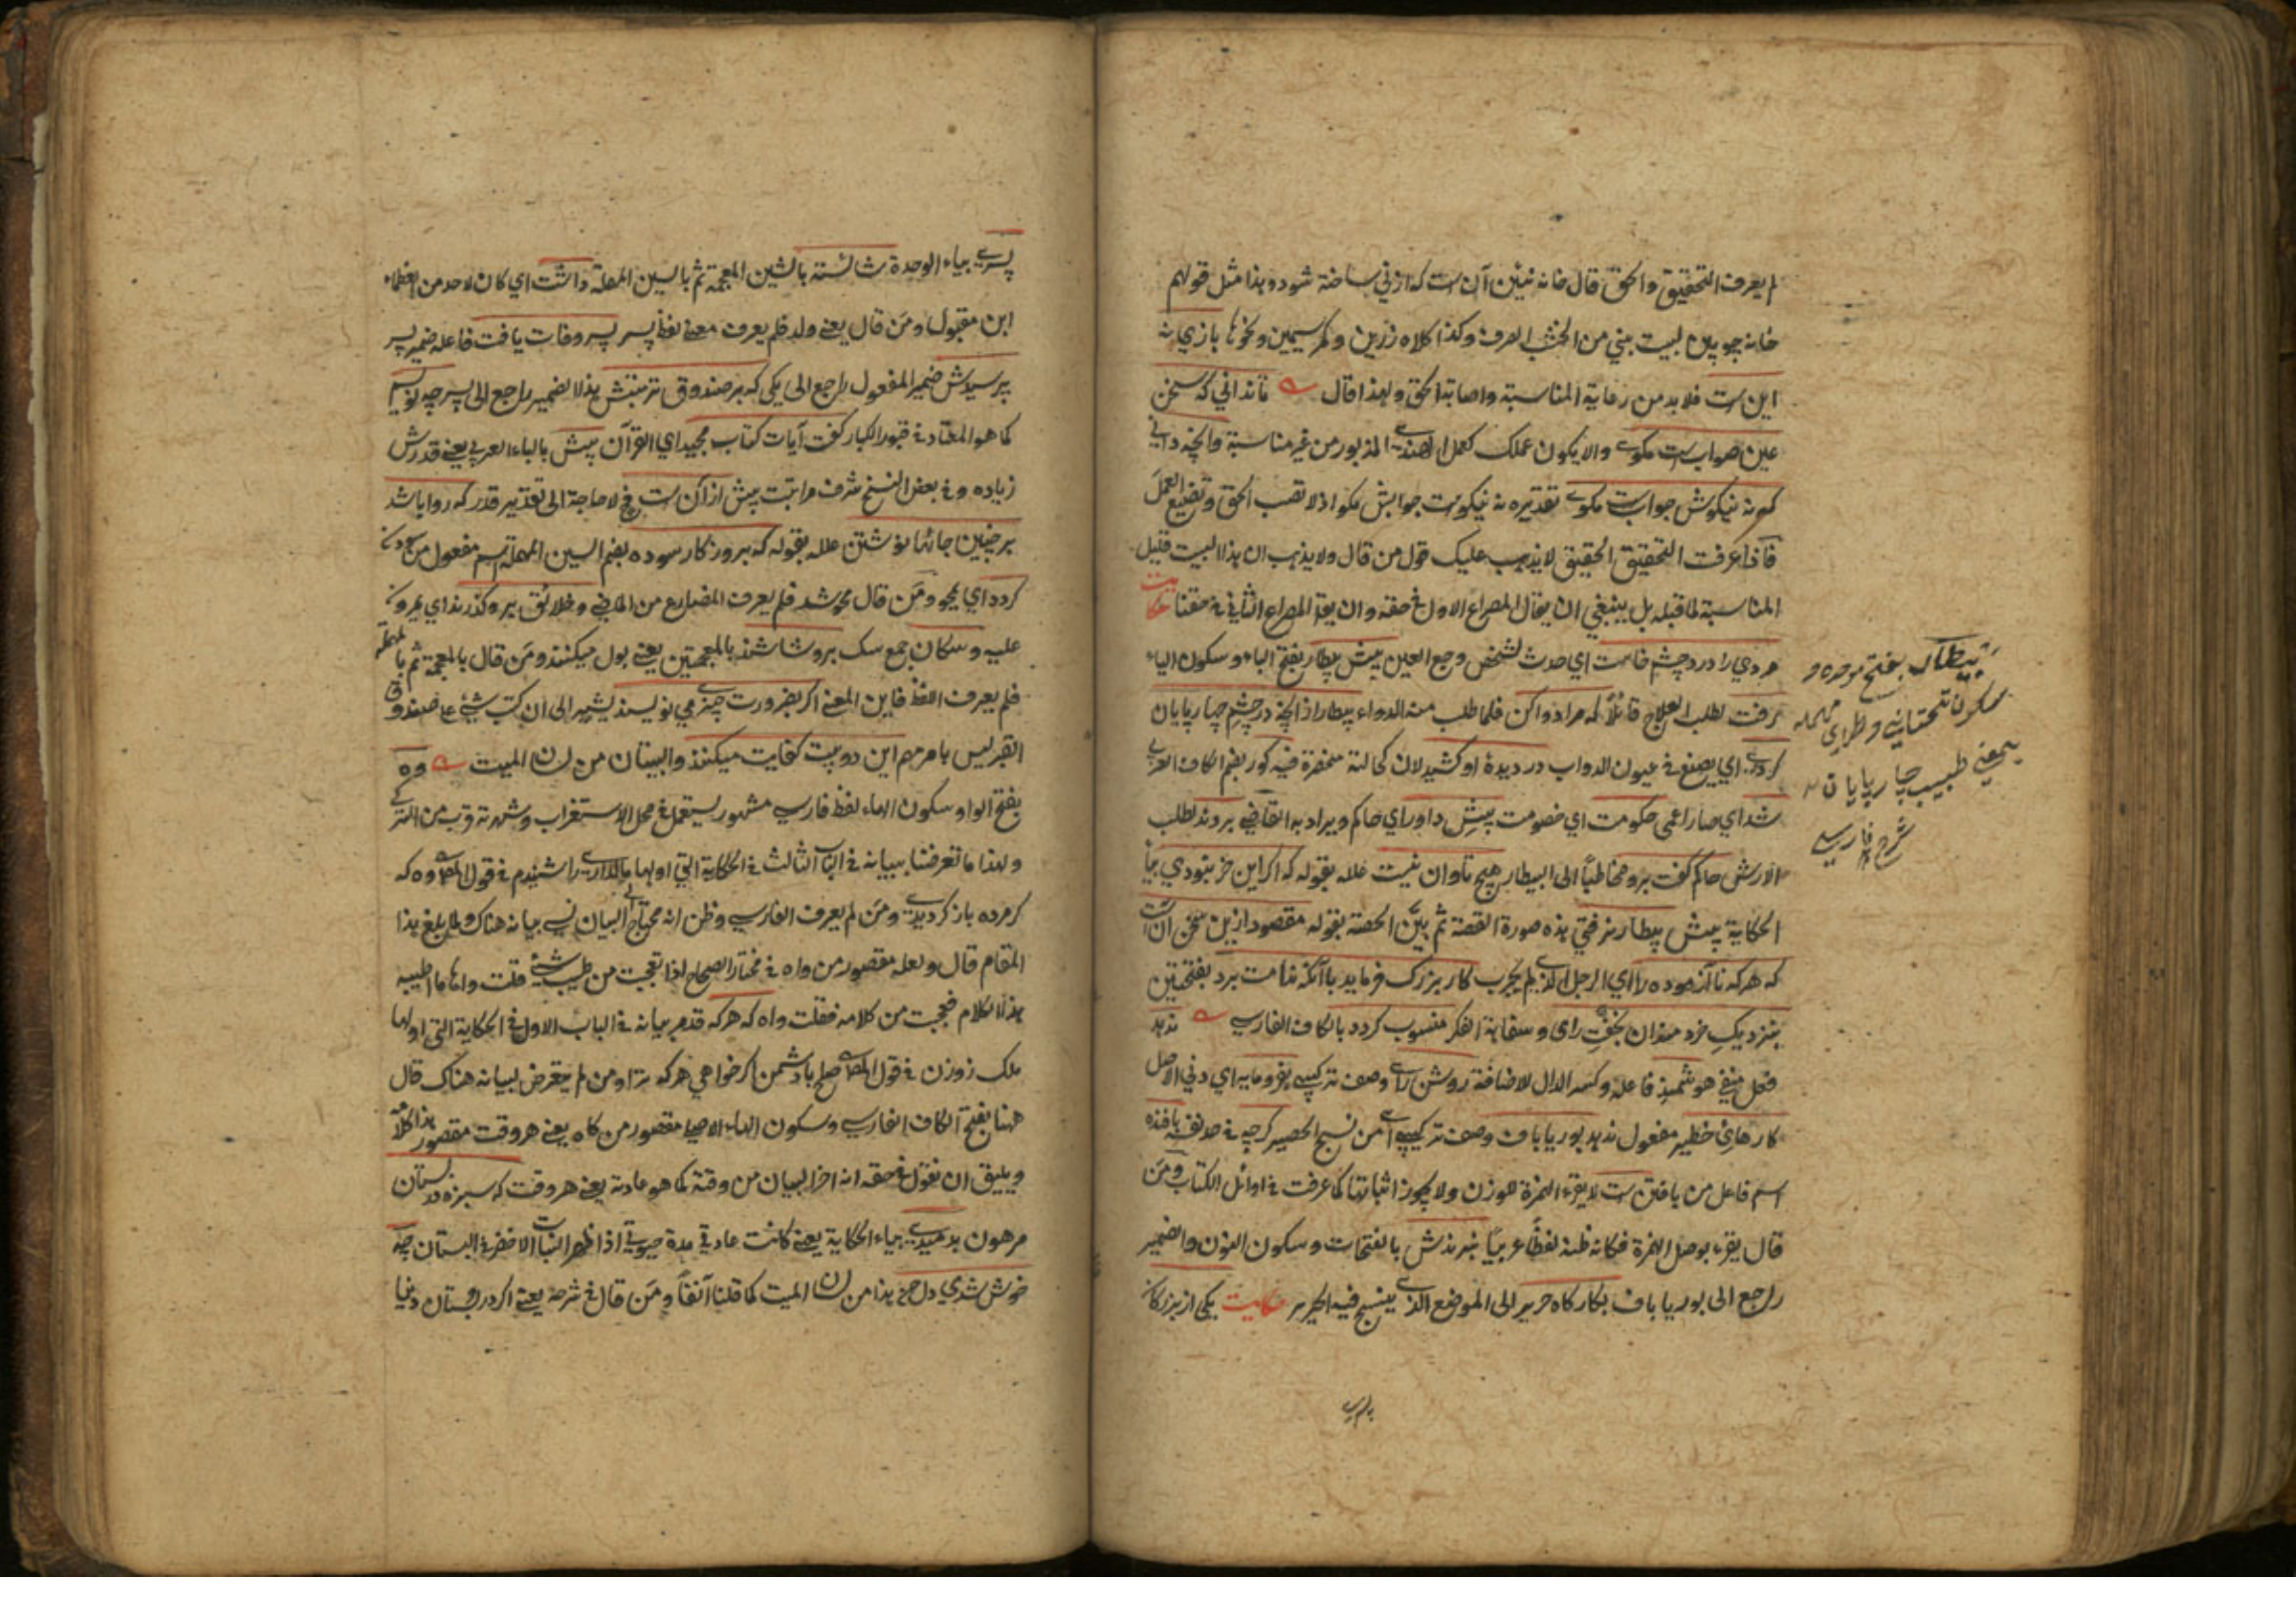 لم يعرف التحقيق والحق قال خانه نيين آن ست كه از ني ساخته شود وهذا مثل قولهم
خانه چوبين لبيت بني من الخشب الصرف وكذا كلاه زرين وكمر سيمين ونحوها بازي نه
اين ست فلا بد من رعاية المناسبة واصابة الحق ولهذا قال تا نداني كه سخن
عين صواب ست مكوي والا يكون عملك كعمل الهندي المذبور من غير مناسبة وانچه داني
كه نه نيكوش جواب ست مكوي تقديره نه نيكوست جوابش مكو اذ لا تصب الحق وتضيع العمل
فاذا عرفت التحقيق الحقيق لا يذهب عليك قول من قال ولا يذهب ان هذا البيت قليل
المناسبة لما قبله بل ينبغي ان يقال المصراع الاول في حقه وان يقرأ المصراع الثاني في حقنا حكايت
مردي را درد چشم خاست اي حدث لشخص وجع العين پيش بيطار بفتح الباء وسكون الياء
رفت لطلب العلاج قائلا كه مرا دوا كن فلما طلب منه الدواء بيطار از انچه در چشم چارپايان
كردي اي يصنع في عيون الدواب در ديدهٔ او كشيد لان كحالته منحصرة فيه كور بضم الكاف العربي
شد اي صار اعمى حكومت اي خصومت پيش داور اي حاكم ويراد به القاضي بردند لطلب
الارش حاكم كفت برو مخاطبا الى البيطار هيچ تاوان نيست علله بقوله كه اكر اين خر نبودي بياء
الحكاية پيش بيطار نرفتي هذه صورة القصة ثم بين الحصة بقوله مقصود ازين سخن آن ست
كه هر كه نا آزموده را اي الرجل الذي لم يجرب كار بزرك فرمايد با آنكه ندامت برد بفتحتين
بنزديك خردمندان بخفت راى وسفاهة الفكر منسوب كردد بالكاف الفارسي ندهد
فعل منفي هوشمند فاعله وكسر الدال لاضافة روشن راى وصف تركيبي بفرومايه اي دني الاصل
كارهاي خطير مفعول ندهد بوريا باف وصف تركيبي من نسج الحصير كرچه في حد نفسه بافنده
اسم فاعل من بافتن ست لا يقرء الهمزة للوزن ولا يجوز اثباتها كما عرفت في اوائل الكتاب ومن
قال يقرء بوصل الهمزة فكانه ظنه لفظا عربيا نبرندش بالفتحات وسكون النون والضمير
راجع الى بوريا باف بكاركاه حرير الى الموضع الذي ينسج فيه الحرير حكايت يكي از بزركان
بيطار بفتح موحده و
سكون تحتانيه وطراي مهمله
بمعني طبيب چارپايان
شرح فارسي
پسري بياء الوحدة شائسته بالشين المعجمة ثم بالسين المهملة داشت اي كان لاحد من العظماء
ابن مقبول ومن قال يعني ولد فلم يعرف معنى لفظ پسر پسر وفات يافت فاعله ضمير پسر
پرسيدش ضمير المفعول راجع الى يكي كه بر صندوق تربتش هذا الضمير راجع الى پسر چه نويسيم
كما هو المعتاد في قبور الكبار كفت آيات كتاب مجيد اي القرآن پيش بالباء العربي يعني قدرش
زياده وفي بعض النسخ شرف مراتبت پيش از آن ست فح لا حاجة الى تقدير قدر كه روا باشد
بر چنين جائها نوشتن علله بقوله كه بروزكار سوده بضم السين المهملة اسم مفعول من سودن
كردد اي يمحو ومن قال محو شد فلم يعرف المضارع من الماضي وخلائق برو كذرند اي يمرون
عليه وسكان جمع سك برو شاشند بالمعجمتين يعني بول ميكنند ومن قال بالمعجمة ثم بالمهملة
فلم يعرف اللفظ فاين المعنى اكر بضرورت چيزي مي نويسند يشير الى ان كتب شئ على صندوق
القبر ليس بامر مهم اين دو بيت كفايت ميكنند والبيتان من لسان الميت وه
بفتح الواو وسكون الهاء لفظ فارسي مشهور يستعمل في محل الاستغراب وشهرته قرب من التركي
ولهذا ما تعرضنا ببيانه في الباب الثالث في الحكاية التي اولها مالداري را شنيدم في قول المص وه كه
كر مرده باز كرديدي ومن لم يعرف الفارسي وظن انه محتاج الى البيان نسي بيانه هناك ولما بلغ هذا
المقام قال ولعله مقصور من واه في مختار الصحاح اذا تعجبت من طيب شئ قلت واها ما اطيبه
هذا الكلام فعجبت من كلامه فقلت واه كه هركه قدم بيانه في الباب الاول في الحكاية التي اولها
ملك زوزن في قول المص صلح با دشمن اكر خواهي هركه ترا ومن لم يتعرض لبيانه هناك قال
ههنا بفتح الكاف الفارسي وسكون الهاء الاصلي مقصور من كاه يعني هر وقت مقصور هذا كلامه
ويليق ان نقول في حقه انه اخر البيان من وقته كما هو عادته يعني هر وقت كه سبزه در بستان
مرهون بدميدي بياء الحكاية يعني كانت عادتي مدة حيوتي اذا ظهر النبات الاخضر في البستان چه
خوش شدي دل من هذا من لسان الميت كما قلنا آنفا ومن قال في شرحه يعني اكر در بستان دنيا